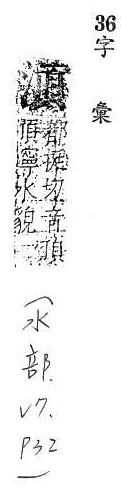 36
字彙
都挺切音頂
寧水貌
(水部. V7. P32)